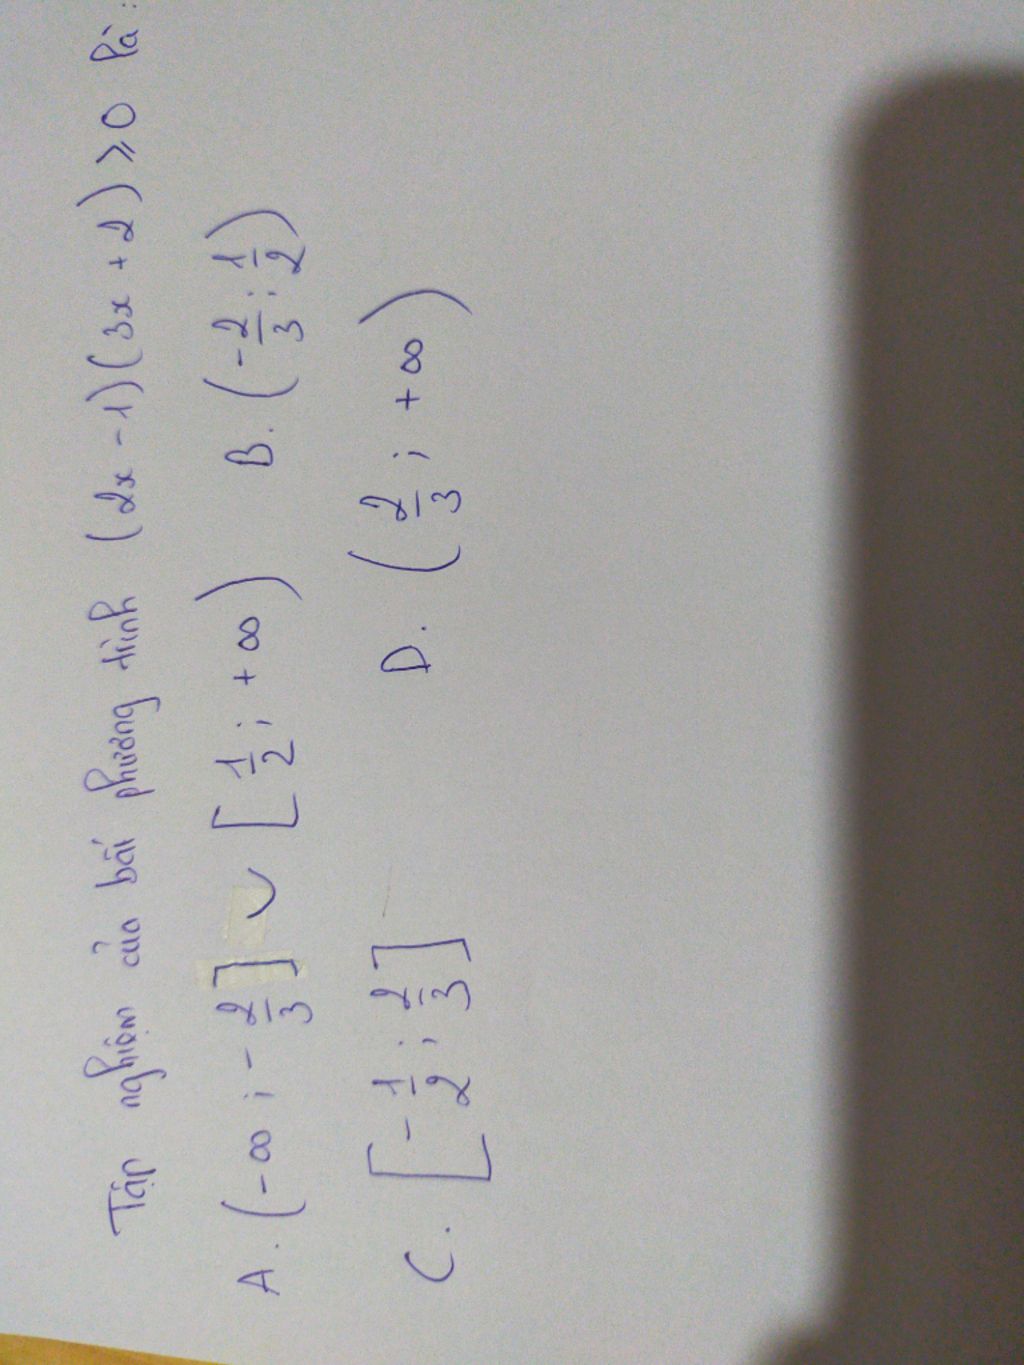 Tập nghiệm của bất phương trình (2x - 1)(3x + 2) ⩾ 0 là:
A. (-∞ ; -2/3] ∪ [1/2 ; +∞) B. (-2/3 ; 1/2)
C. [-1/2 ; 2/3] D. (2/3 ; +∞)